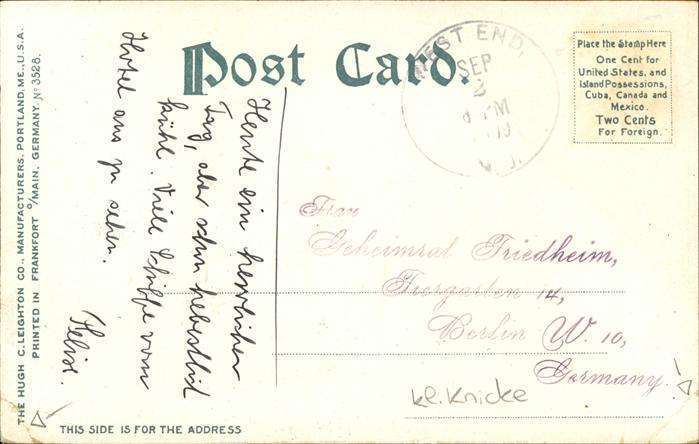 Post Card.
WEST END,
SEP
2
8 PM
N.J.
Place the Stamp Here
One Cent for
United States, and
Island Possessions,
Cuba, Canada and
Mexico.
Two Cents
For Foreign.
Heute ein herrlicher
Tag, aber schon herbstlich
kühl. Viele Schiffe vom
Hotel aus zu sehen.
Felix.
Frau
Geheimrat Friedheim,
Tiergarten 14,
Berlin W. 10,
Germany.
kl. Knicke
THE HUGH C. LEIGHTON CO., MANUFACTURERS, PORTLAND, ME., U.S.A.
PRINTED IN FRANKFORT o/MAIN, GERMANY. No 3528.
THIS SIDE IS FOR THE ADDRESS